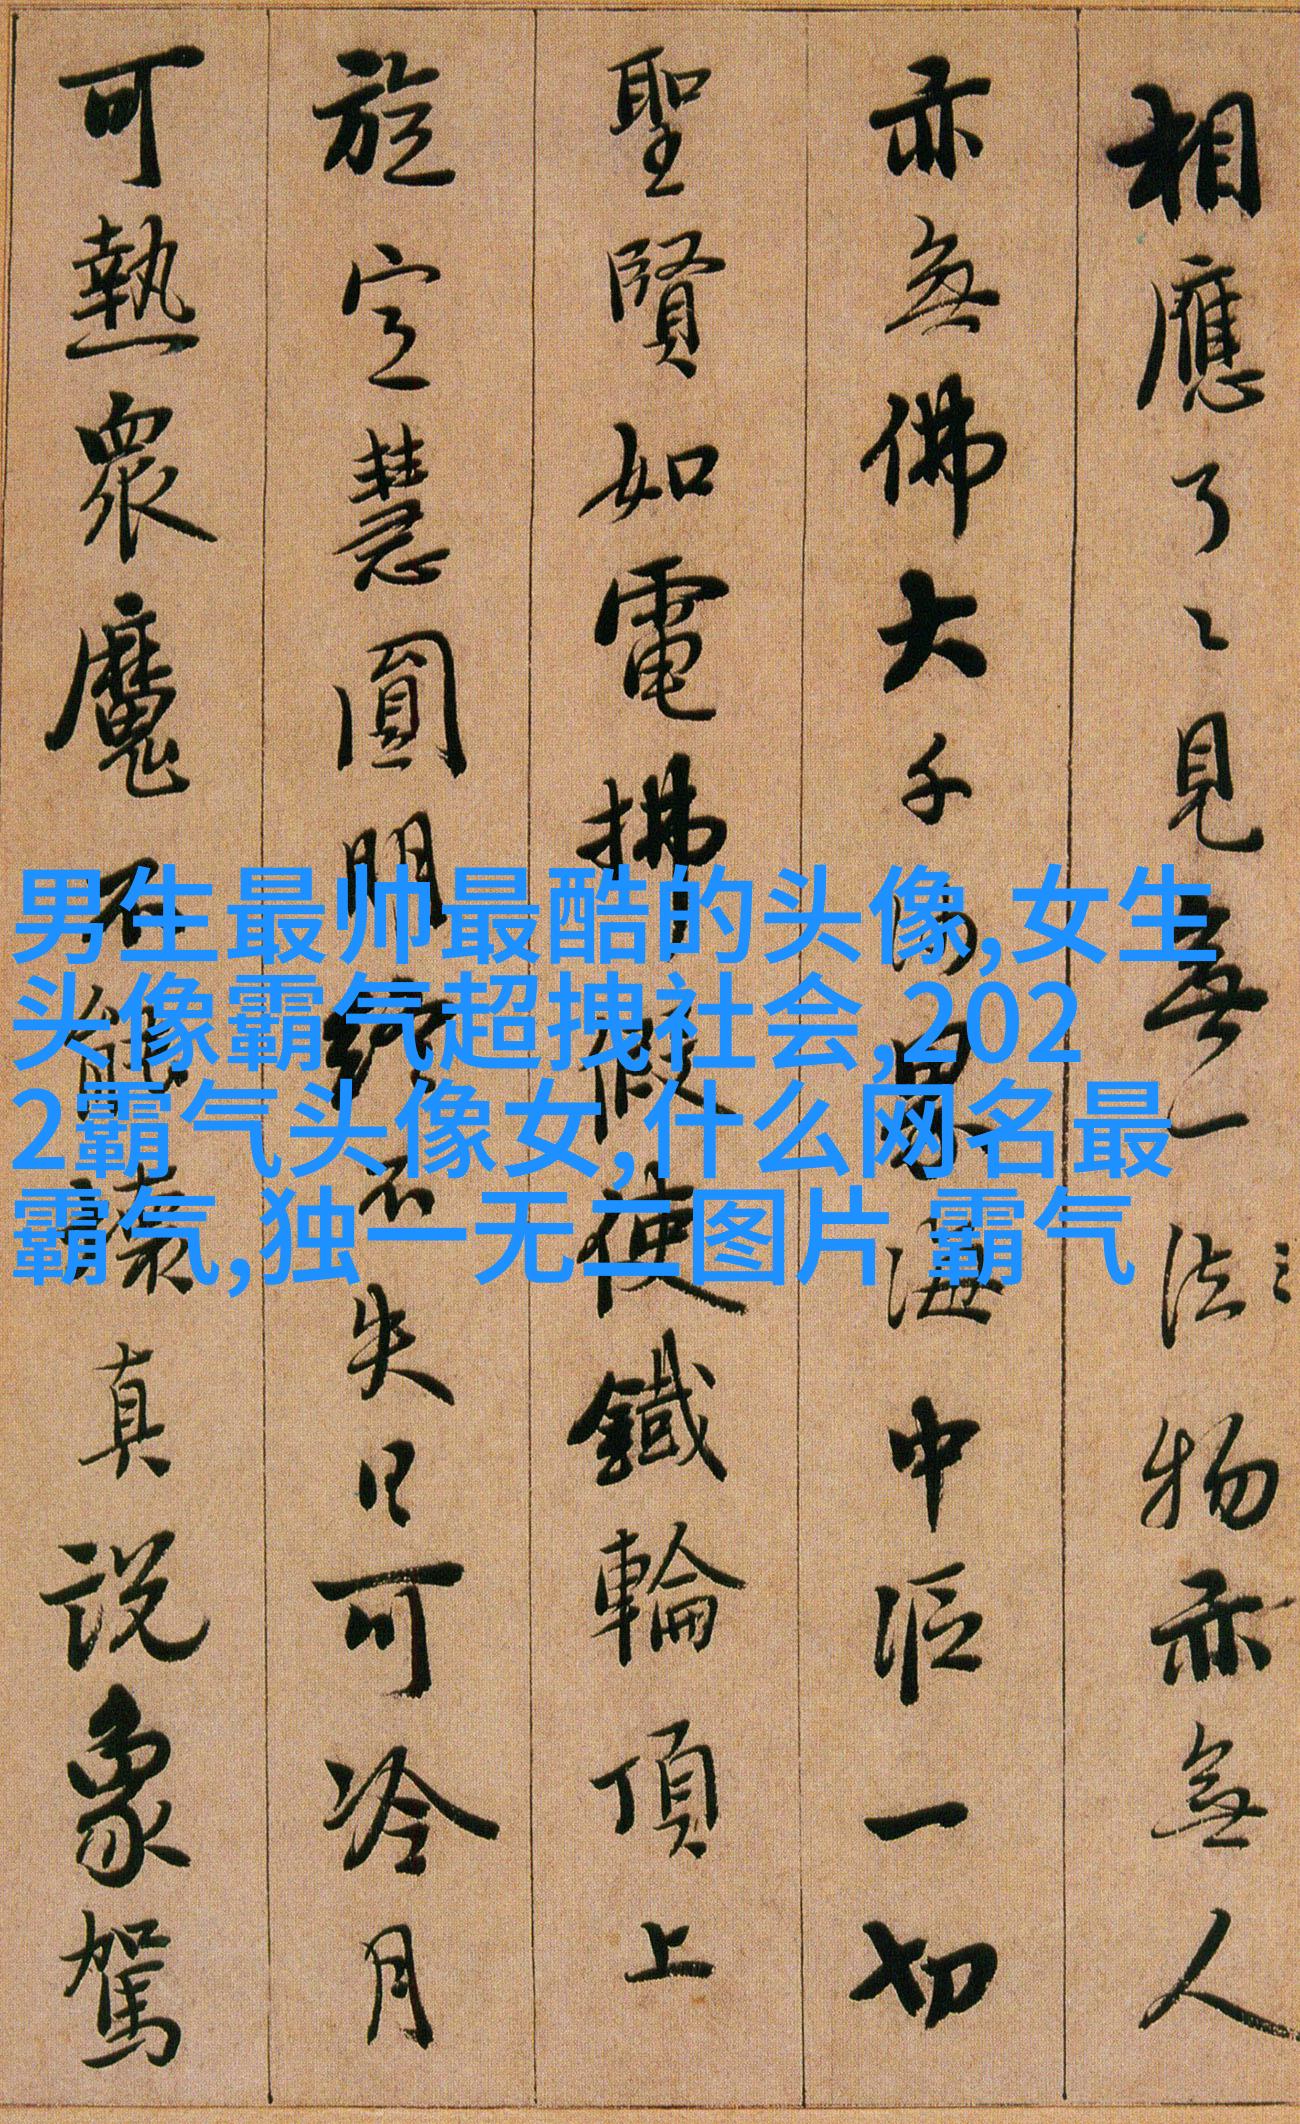 相應了々見無一法物亦無人
亦無佛大千沙界海中漚一切
聖賢如電拂假使鐵輪頂上
旋定慧圓明終不失日可冷月
可熱衆魔不能壞真説象駕
男生最帅最酷的头像,女生
头像霸气超拽社会,202
2霸气头像女,什么网名最
霸气,独一无二图片 霸气